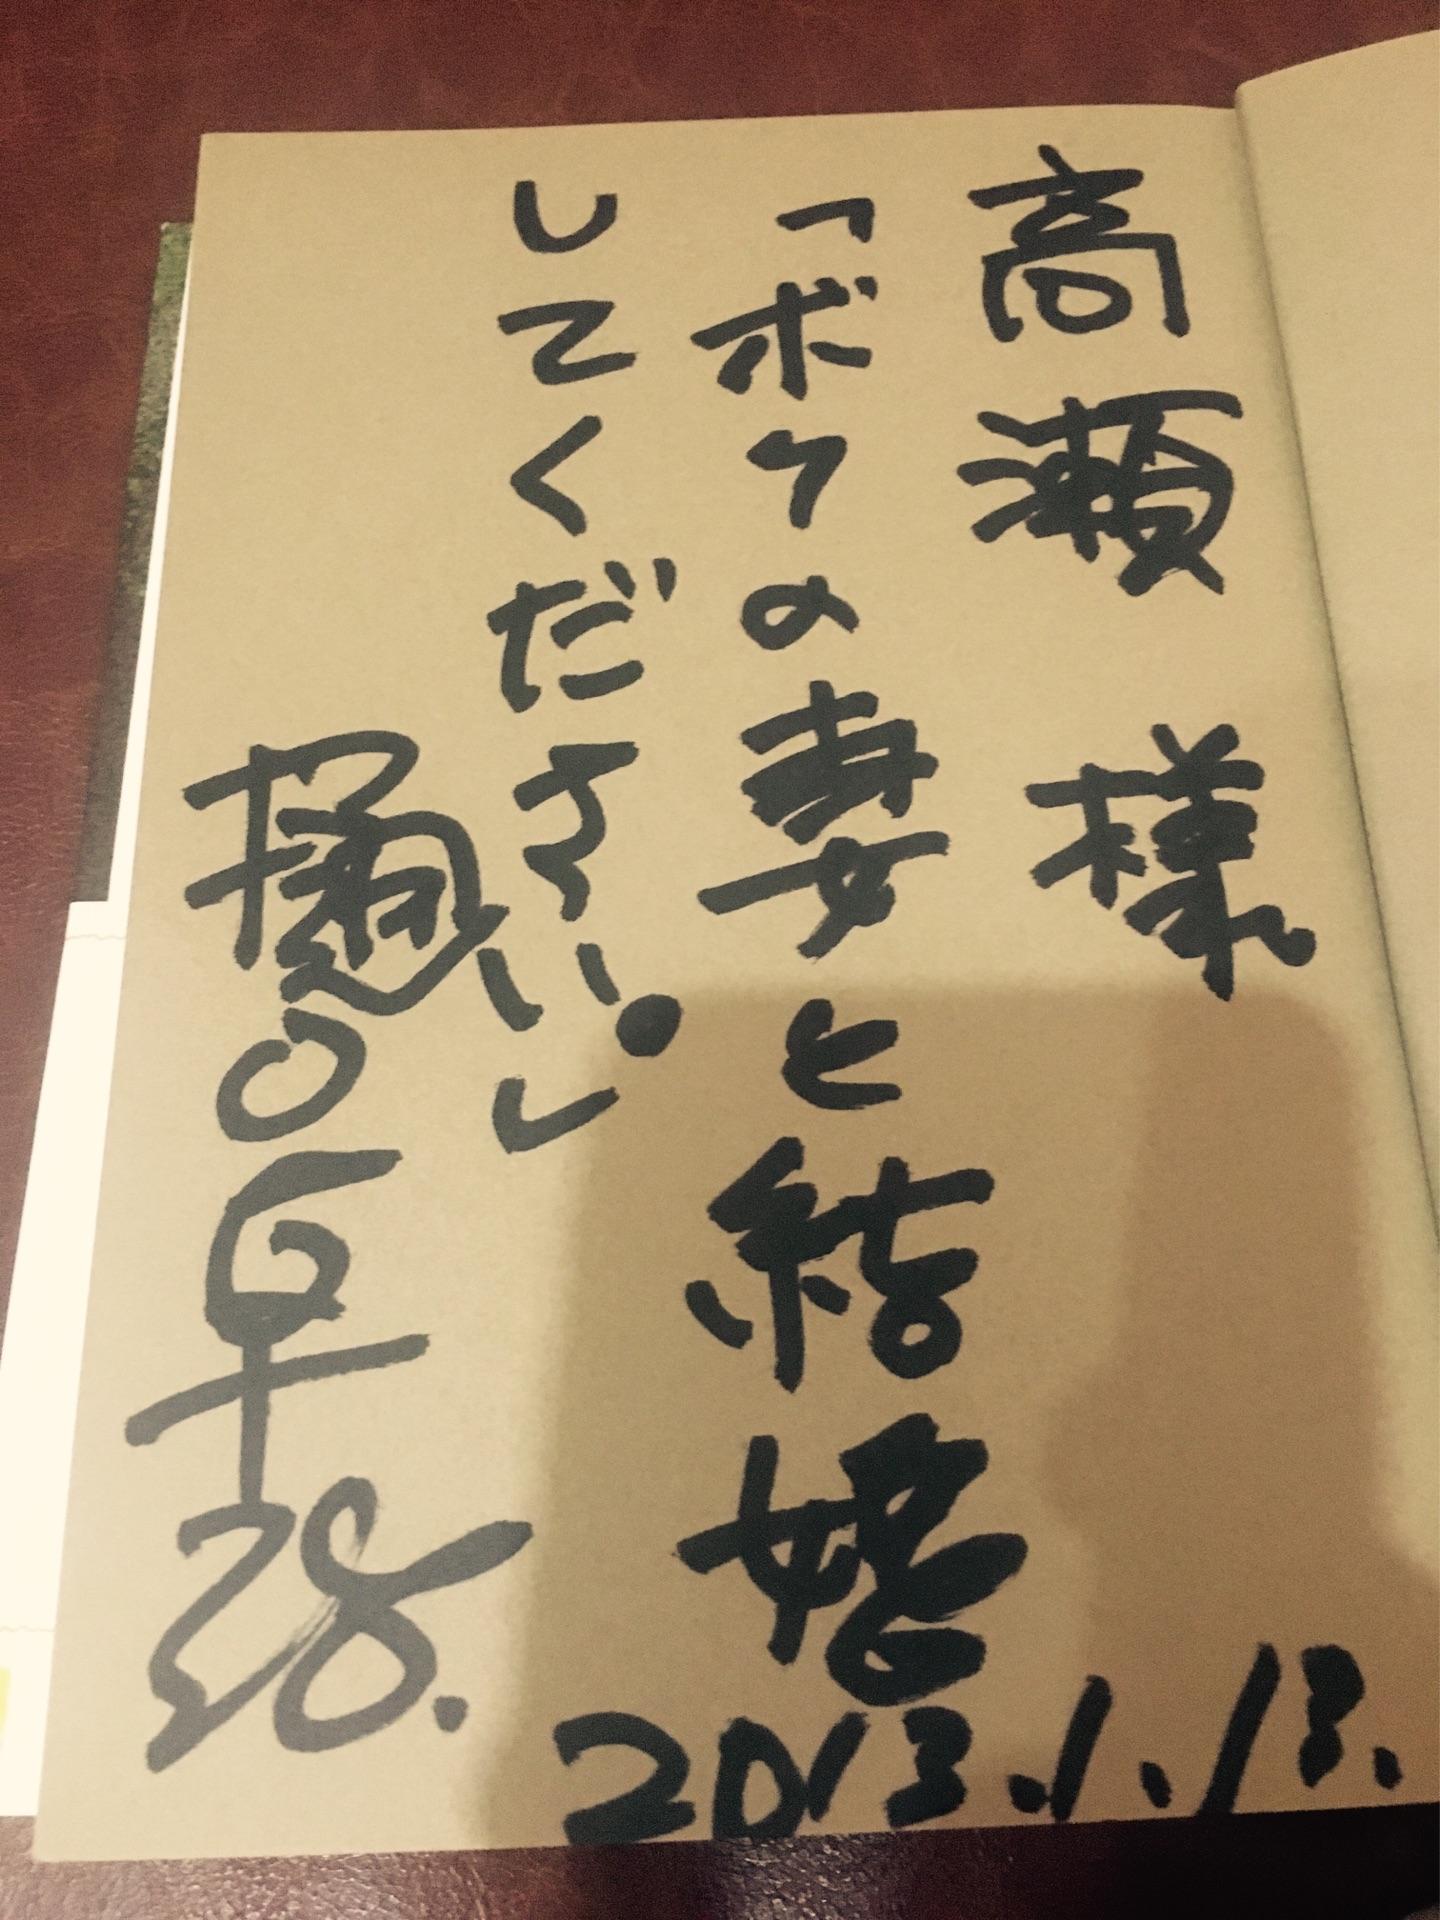 高瀬 様
「ボクの妻と結婚
してください。」
樋口卓治.
2013.1.13.